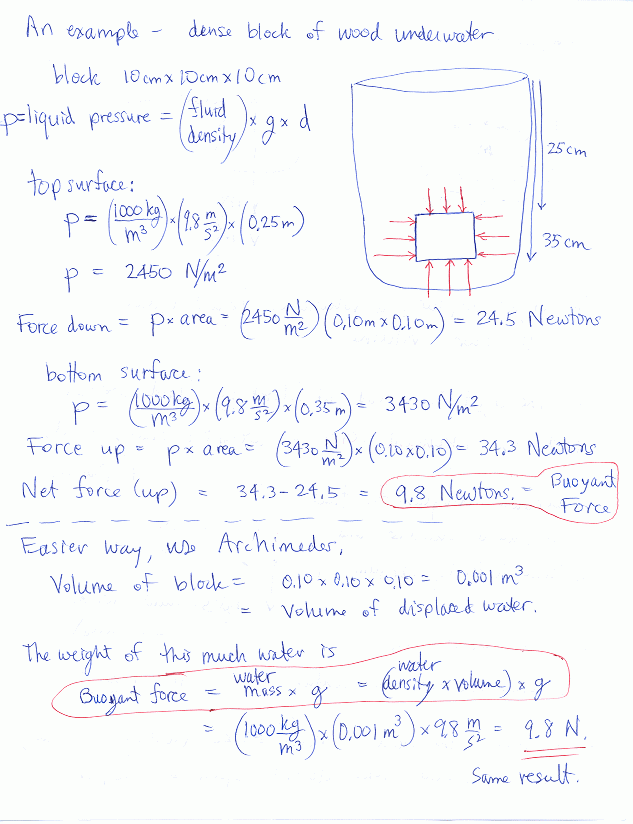 An example - dense block of wood underwater
block 10cm x 10cm x 10cm
p=liquid pressure = (fluid density) x g x d
25cm
35cm
top surface:
p = (1000 kg/m³) x (9.8 m/s²) x (0.25m)
p = 2450 N/m²
Force down = p x area = (2450 N/m²)(0.10m x 0.10m) = 24.5 Newtons
bottom surface:
p = (1000 kg/m³) x (9.8 m/s²) x (0.35m) = 3430 N/m²
Force up = p x area = (3430 N/m²) x (0.10 x 0.10) = 34.3 Newtons
Net force (up) = 34.3 - 24.5 = 9.8 Newtons. = Buoyant Force
Easier way, use Archimedes,
Volume of block = 0.10 x 0.10 x 0.10 = 0.001 m³
= Volume of displaced water.
The weight of this much water is
Buoyant force = water mass x g = (water density x volume) x g
= (1000 kg/m³) x (0.001 m³) x 9.8 m/s² = 9.8 N.
Same result.